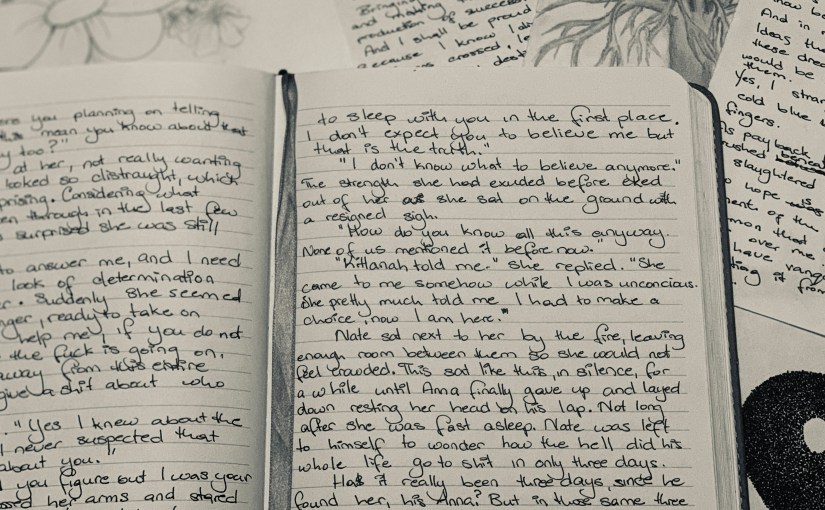 Bringing
and whatting
production of success
And I shall be proud
Because I know I did
crossed, le
dest
ere you planning on telling
mean you know about that
y too?"
at her, not really wanting
looked so distraught, which
prising. Considering what
en through in the last few
surprised she was still
to answer me, and I need
look of determination
r. Suddenly she seemed
nger, ready to take on
help me, if you do not
the fuck is going on,
away from this entire
give a shit about who
. "Yes I knew about the
I never suspected that
about you."
I you figure out I was your
ssed her arms and stared
to sleep with you in the first place.
I don't expect you to believe me but
that is the truth."
"I don't know what to believe anymore."
The strength she had exuded before eked
out of her as she sat on the ground with
a resigned sigh.
"How do you know all this anyway.
None of us mentioned it before now."
"Killanah told me." she replied. "She
came to me somehow while I was unconcious.
She pretty much told me I had to make a
choice, now I am here."
Nate sat next to her by the fire, leaving
enough room between them so she would not
feel crowded. This sat like this, in silence, for
a while until Anna finally gave up and layed
down resting her head on his lap. Not long
after she was fast asleep. Nate was left
to himself to wonder how the hell did his
whole life go to shit in only three days.
Has it really been three days, since he
found her, his Anna? But in those same three
now bo
And in
Ideas tha
these drea
would be
them.
Yes, I stran
cold blue
fingers.
As payback
rushed
slaughtered
hope is
ment of the
mon that
over me
have rang
ting it from